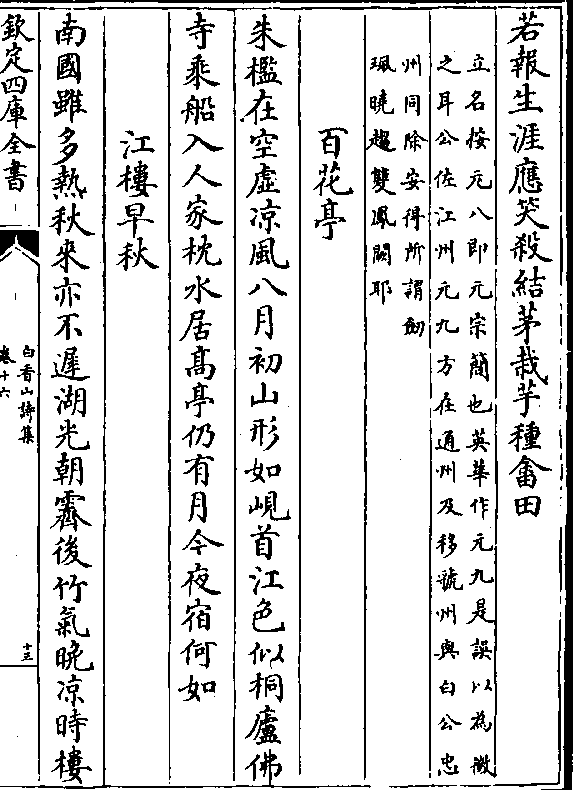 若報生涯應笑殺結茅栽芋種畬田
立名按元八即元宗簡也英華作元九是誤以為微
之耳公佐江州元九方在通州及移虢州與白公忠
州同除安得所謂劒
珮曉趨雙鳳闕耶
百花亭
朱檻在空虛凉風八月初山形如峴首江色似桐廬佛
寺乘船入人家枕水居高亭仍有月今夜宿何如
江樓早秋
南國雖多熱秋來亦不遲湖光朝霽後竹氣晚凉時樓
欽定四庫全書
白香山詩集
卷十六
十三